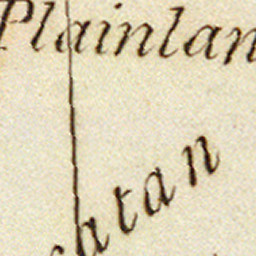 Plainlan
atan